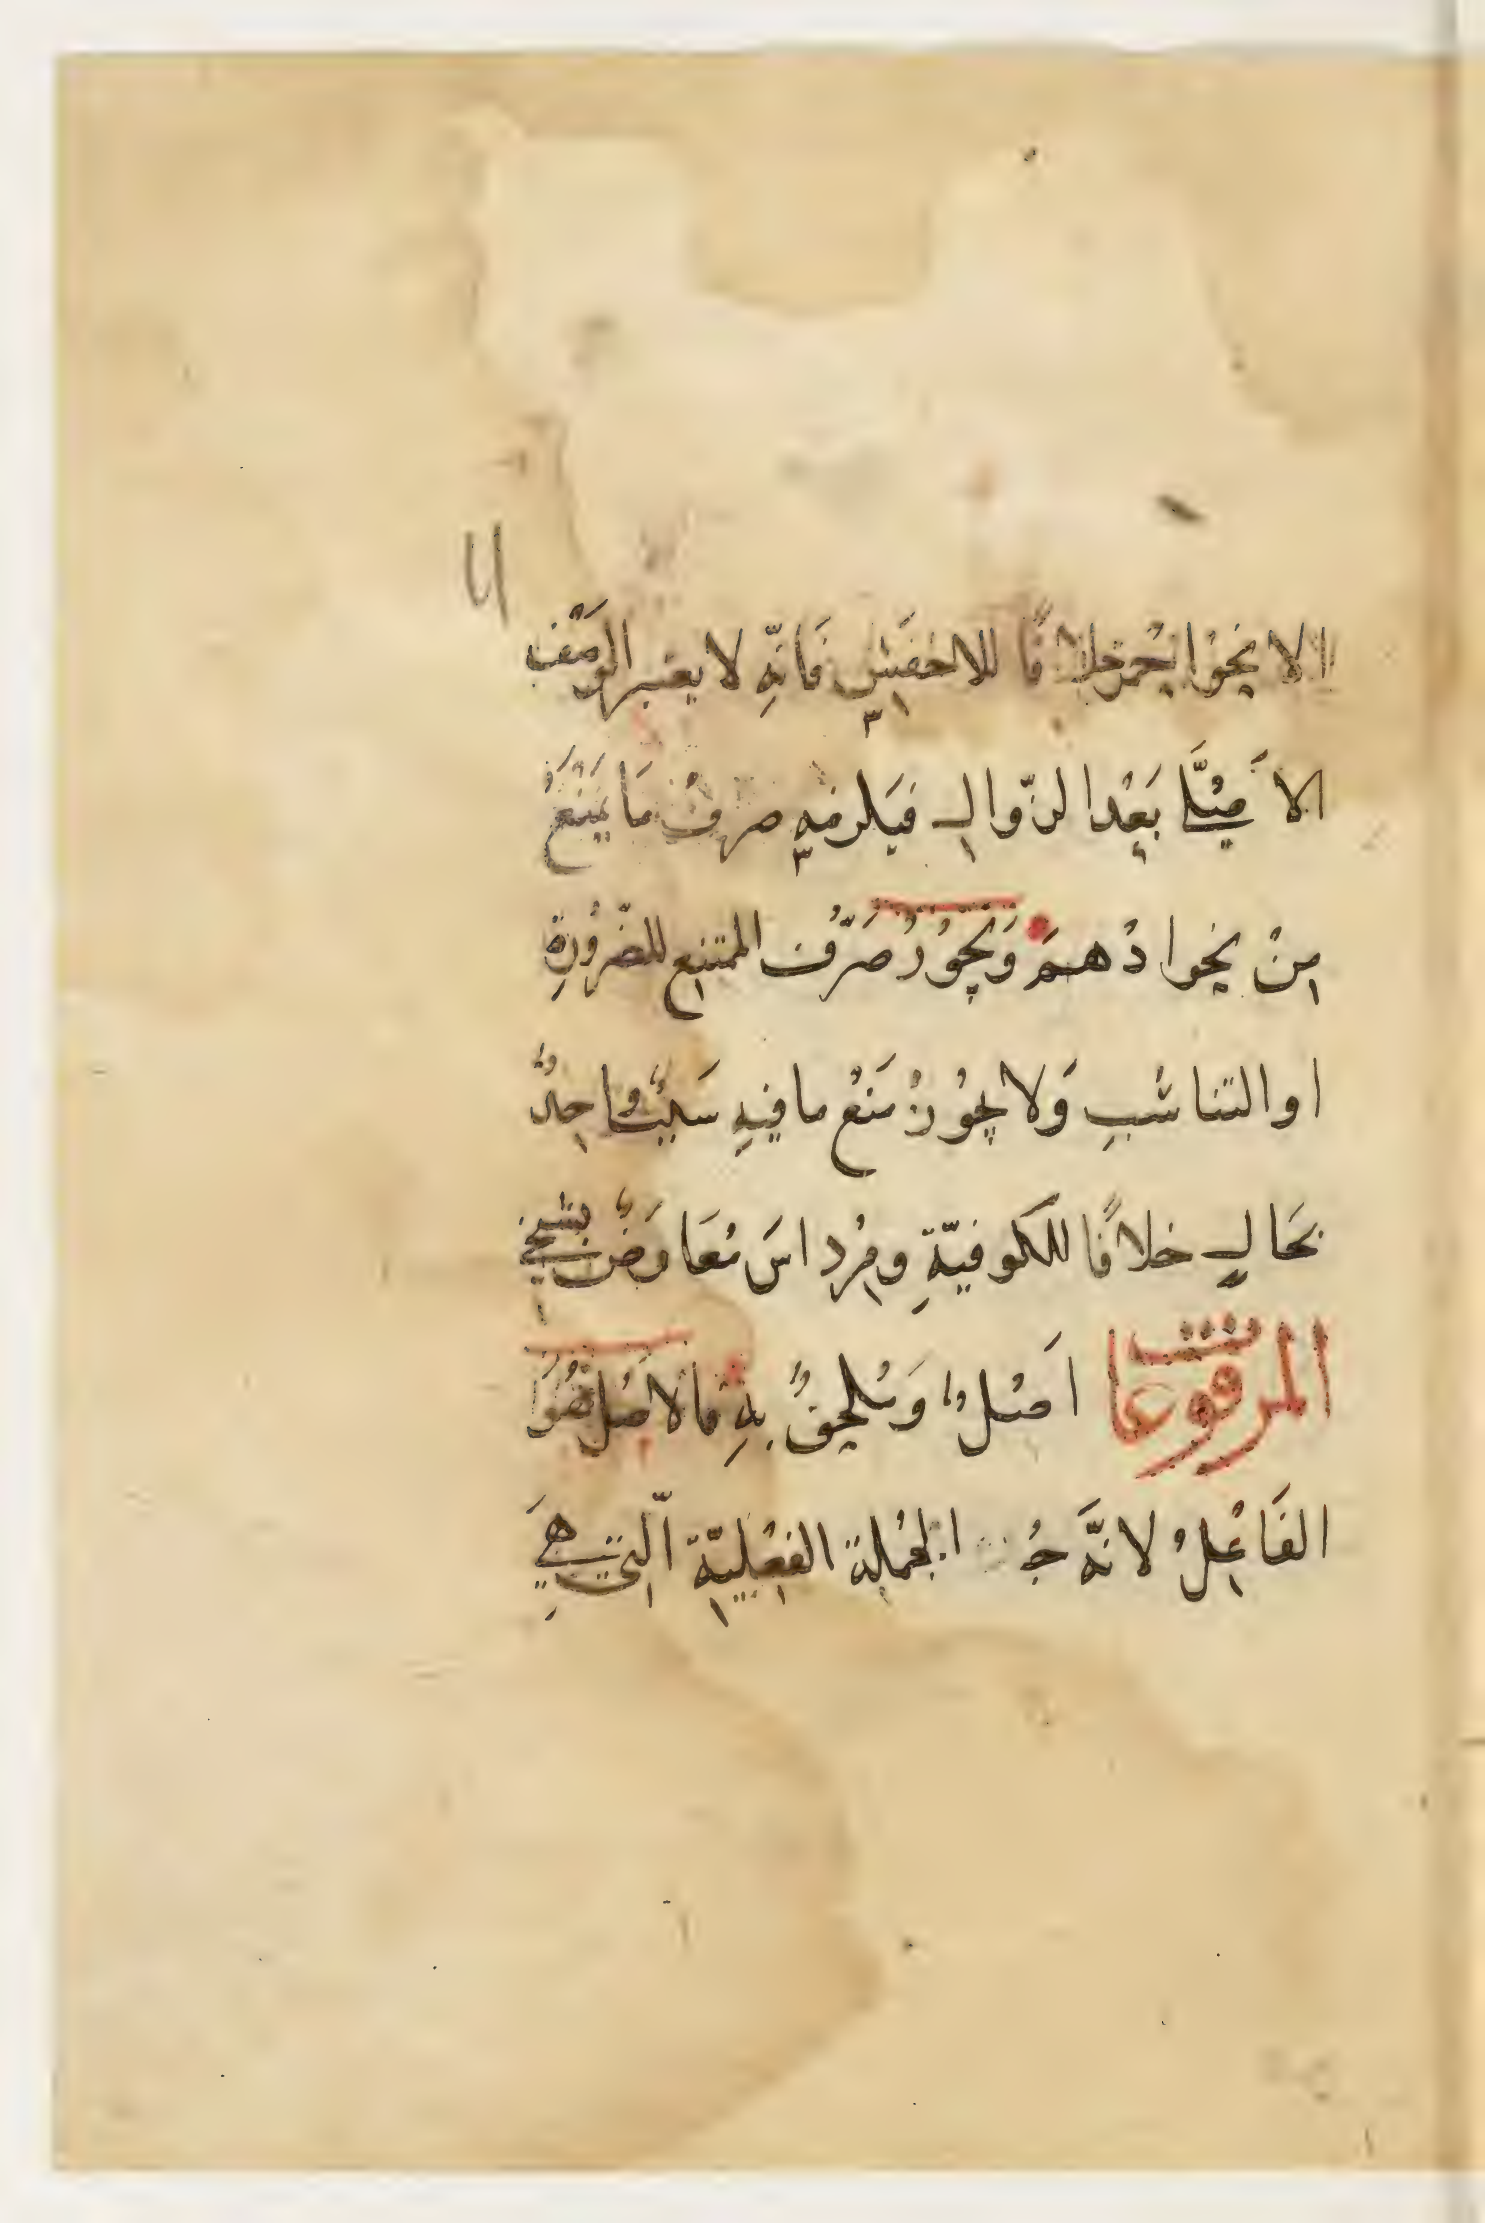 الا نحوا حمر خلافًا للاخفشِ فَانّهِ لا يعتبر الوَصْف
الاَصْليَّ بَعْد الزّوالِ فيَلزمهِ صرفُ مَا يَمْنَعُ
مِنْ نحوا دْهَمَ وَيَجُوْزُ صَرّفُ الممتنعِ للضّرُورةِ
او التناسُبِ وَلا يجُوْزُ مَنْع ما فيهِ سَببٌ واحِدٌ
بحَالٍ خلافًا للكوفيّةِ ومِرْداسَ مُعَاوَضٌ بشيخي
المرفوعات اَصْلٌ وَمُلحِقٌ بِهِ فالاَصْل هُوَا
الفَاعِلُ لانَّه جُز الجُملة الفِعْليّةِ الّتي هِيَ